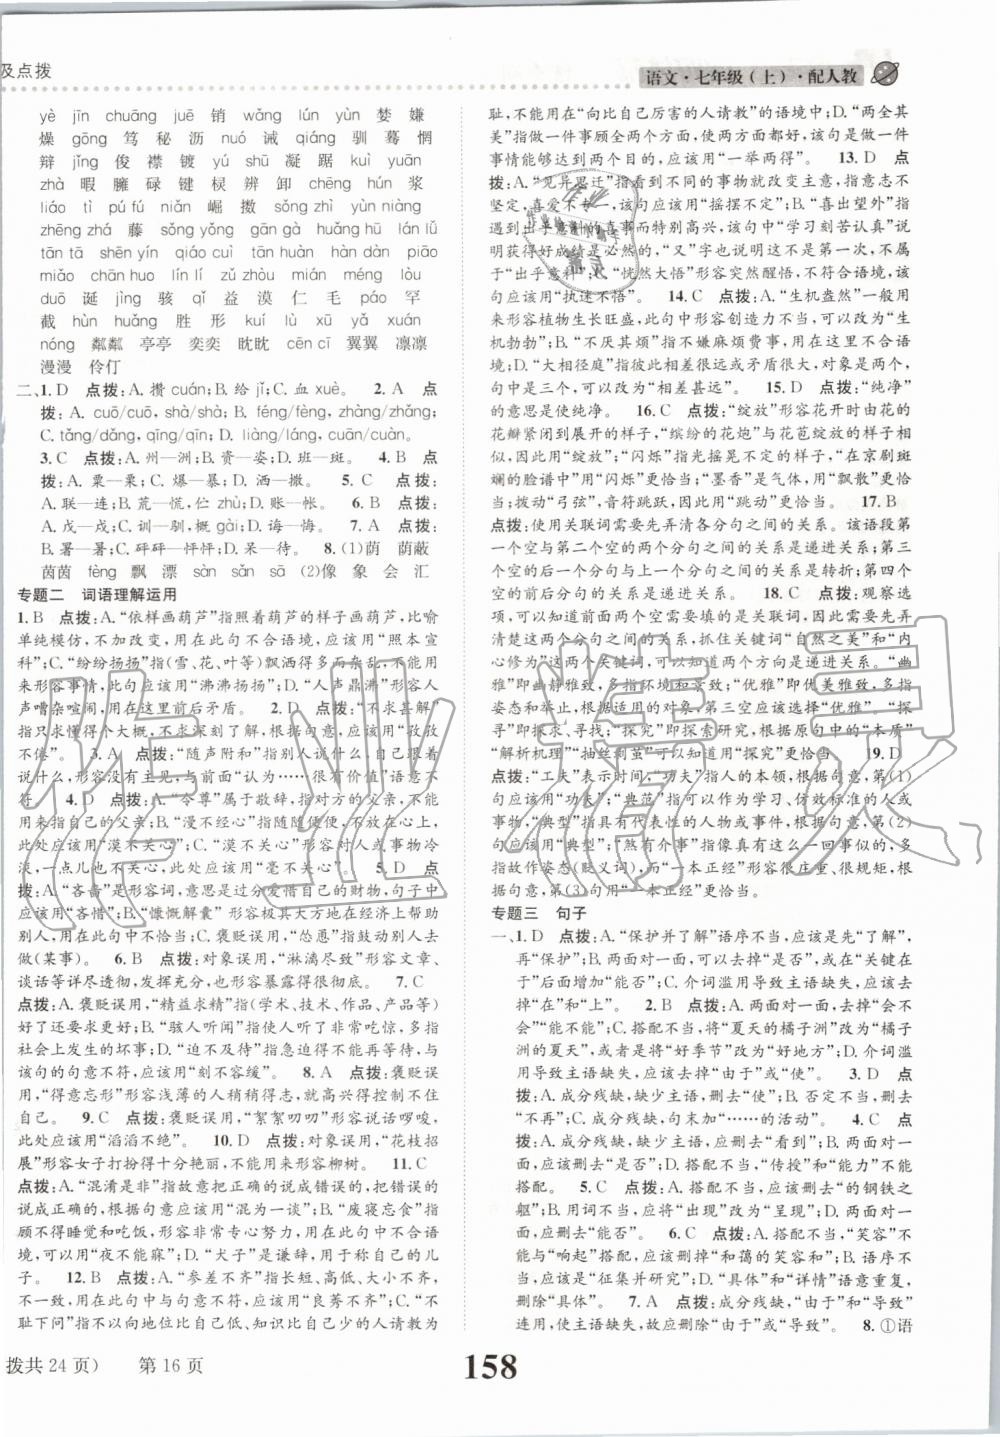 及点拨
语文·七年级(上)·配人教
yè jīn chuāng jué 销 wǎng liàng 婪 嫌
燥 gōng 笃 秘 沥 nuó 诫 qiáng 驯 蓦 惘
辩 jǐng 俊 襟 镀 yú shū 凝 踞 kuì yuān
zhà 暇 臃 碌 键 棂 辨 卸 chēng hún 浆
liáo tì pú fú niǎn 崛 擞 sǒng zhì yùn niàng
zhēng da 藤 sǒng yǒng gān gà huǎng hū lán lǚ
tān tā shēn yín cuì ruò háo táo qì jué lào
miǎo chān hún lín lí zǔ zhòu mián méng lòu
duō 诞 jīng 骇 qǐ 益 漠 仁 毛 páo 罕
截 hùn huǎng 胜 形 kuí lù xū yā cán
nóng 粼粼 亭亭 奕奕 眈眈 cēn cī 翼翼 凛凛
漫漫 伶仃
二、1.D 点拨:A.攒 cuán;B.给 jǐ;C.血 xuè。 2.A 点
拨:A. cuō/cuō,shà/shà;B. féng/fèng,zhàng/zhǎng;
C. tǎng/dǎng,qīng/qīn;D. liàng/láng,cuān/cuān。
3.C 点拨:A.州—洲;B.资—姿;D.班—斑。 4.B 点
拨:A.粟—栗;C.爆—暴;D.洒—撒。 5.C 点拨:
A.联—连;B.荒—慌,伫 zhù;D.账—帐。 6.B 点拨:
A.戊—戍;C.训—驯,概 gài;D.诲—悔。 7.A 点拨:
B.暑—薯;C.砰砰—怦怦;D.呆—待。 8.(1)荫 荫蔽
茵茵 fèng 飘 漂 sàn sǎn (2)像 象 会 汇
专题二 词语理解运用
1.B 点拨:A.“依样画葫芦”指照着葫芦的样子画葫芦,比喻
单纯模仿,不加改变,用在此句中不合语境,应该用“照本宣
科”;C.“纷纷扬扬”指(雪、花、叶等)飘洒得多而杂乱,不能用
来形容事情,此句中应该用“沸沸扬扬”;D.“人声鼎沸”形容人
声嘈杂喧闹,用在此处前后矛盾。 2.D 点拨:“不求甚解”
指只求懂得个大概,不求深刻了解,用在此处不合语境,应该用“孜孜
不倦”。 3.A 点拨:“随声附和”指别人说什么,自己跟着
说什么,形容没有主见,与前面“认为……很有价值”不合语
境。 4.D 点拨:A.“令尊”属于敬辞,指对方的父亲,不能
用来指自己的父亲;B.“漫不经心”形容随随便便,不放在心上,
此处应该用“漠不关心”;C.“漠不关心”形容对人或事物冷
淡,一点儿也不关心,此处应该用“毫不关心”。 5.D 点
拨:A.“吝啬”是形容词,意思是过分爱惜自己的财物,句子中
应该用“吝惜”;B.“慷慨解囊”形容极其大方地在经济上帮助
别人,用在此句中不恰当;C.褒贬误用,“怂恿”指鼓动别人去
做(某事)。 6.B 点拨:对象误用,“淋漓尽致”形容文章或
说话表达得非常充分、透彻,或非常痛快。 7.C
点拨:A.褒贬误用,“精益求精”指(学术、技术、作品、产品等)
好了还要求更好;B.“骇人听闻”指使人听了非常吃惊,多指
社会上发生的坏事;D.“迫不及待”指急迫得不能再等待,与
该句的句意不符,应该用“刻不容缓”。 8.A 点拨:褒贬误
用,“得意忘形”形容浅薄的人稍稍得志,就高兴得控制不住
自己。 9.C 点拨:褒贬误用,“絮絮叨叨”形容说话啰唆,
此处应该用“滔滔不绝”。 10.D 点拨:对象误用,“花枝招
展”形容女子打扮得十分艳丽,不能用来形容柳树。 11.C
点拨:A.“混淆是非”指故意把正确的说成错误的,把错误的
说成正确的,应该用“混为一谈”;B.“废寝忘食”指顾不得
睡觉和吃饭,形容非常专心努力,用在此句中不合语
境,应该用“夜不能寐”;D.“犬子”是谦辞,用于称自己的儿
子。 12.B 点拨:A.“参差不齐”指长短、高低、大小不齐,
不一致,用在此句中与句意不符,应该用“良莠不齐”;C.“不
耻下问”指不以向地位比自己低、知识比自己少的人请教为
耻,不能用在“向比自己厉害的人请教”的语境中;D.“两全其
美”指做一件事顾全两个方面,使两方面都好,该句是做一件
事情能够达到两方面的效果,应该用“一举两得”。 13.D 点
拨:A.“见异思迁”指看到不同的事物就改变主意,指意志不
坚定,喜爱不专一,该句应该用“摇摆不定”;B.“喜出望外”指
遇到出乎意料的喜事而特别高兴,该句中“学习刻苦认真”说
明获得好成绩是必然的,“又”字也说明不是第一次,不属于
“出乎意料”;C.“恍然大悟”形容突然醒悟,不符合语境,该
句应该用“执迷不悟”。 14.C 点拨:A.“生机盎然”一般用
来形容植物生长旺盛,此句中形容创造力不当,可以改为“生
机勃勃”;B.“不厌其烦”指不嫌麻烦费事,用在此处不合语
境;D.“大相径庭”指彼此相差很远或矛盾很大,不用于程度,
句中是三人对比,可改为“相差甚远”。 15.D 点拨:“纯净”
的意思是使纯净。 16.C 点拨:“绽放”形容花开时由花
花瓣紧闭到展开的样子,“缤纷的花炮”与花苞绽放的样子相
似,应用“绽放”;“闪烁”指光摇晃不定的样子,“在京剧斑
斓的脸谱中”用“闪烁”更恰当;“墨香”是气味,用“飘散”更恰
当;拨动“弓弦”,音符跳跃,因此用“跳动”更恰当。 17.B
点拨:使用关联词需要先弄清各分句之间的关系。该语段第
一个空与第二个空的两个分句之间的关系是递进关系;第三
个空的两个分句之间的关系是转折。 18.C 点拨:观察选
项,可以发现前面两个空需要填的是关联词,所以需要先弄
清楚这两个分句之间的关系,抓住关键词“自然之美”和“内
心修为”这两个关键词,可以知道两个方向是递进关系。“幽
雅”即幽静雅致,多指环境和景致;“优雅”即优美雅致,多指
人的言行举止,根据适用的对象,第三空应该选择“优雅”。“探
寻”即探求、寻找;“探究”即探索研究,根据原句中的“本质”
“解析机理”“抽丝剥茧”可以知道用“探究”更恰当。 19.D
点拨:“工夫”表示时间,“功夫”指人的本领,根据句意,第(1)
句应该用“功夫”;“典范”指可以作为学习、仿效标准的人或
事物,“典型”指具有代表性的人物或事件,根据句意,第(2)
句应该用“典型”;“煞有介事”指好像真有这么一回事似的,多
指故作姿态(贬义词),“一本正经”形容很庄重、很正经,根
据句意,第(3)句用“一本正经”更恰当。
专题三 句子
一、1.D 点拨:A.“保护并了解”语序不当,应该是先“了解”,
再“保护”;B.一面对两面,应该删去“能否”,或在“关键在
于”后面加“是否能”;C.介词滥用导致主语缺失,应该删去
“在”和“上”。 2.B 点拨:A.两面对一面,去掉“会不
会”“能不能”;C.搭配不当,将“夏天的橘子洲”改为“橘子
洲的夏天”,或者将“好季节”改为“好地方”;D.介词滥
用导致主语缺失,应该删去“由于”或“使”。 3.D
点拨:A.成分残缺,应该删去“使”;B.否定不当,删去
“不再”;C.成分残缺,句末加“……的活动”。 4.C 点
拨:A.成分残缺,缺少主语,应删去“看到”;B.两面对一
面,应删去“是否”;D.搭配不当,“传授”和“能力”不能
搭配。 5.C 点拨:A.搭配不当,应该删去“的钢铁之
躯”;B.用词不当,应该将“出现”改为“呈现”;D.两面对一
面,应删去“能否”。 6.C 点拨:A.搭配不当,“笑容”不
能与“响起”搭配,应该删掉“和蔼的笑容和”;B.语序不
当,应该是“征集并研究”;D.“具体”和“详情”语意重复,
删除“具体”。 7.A 点拨:成分残缺,“由于”和“导致”
连用,导致主语残缺,故应删除“由于”或“导致”。 8.①语
拨共24页) 第16页
158